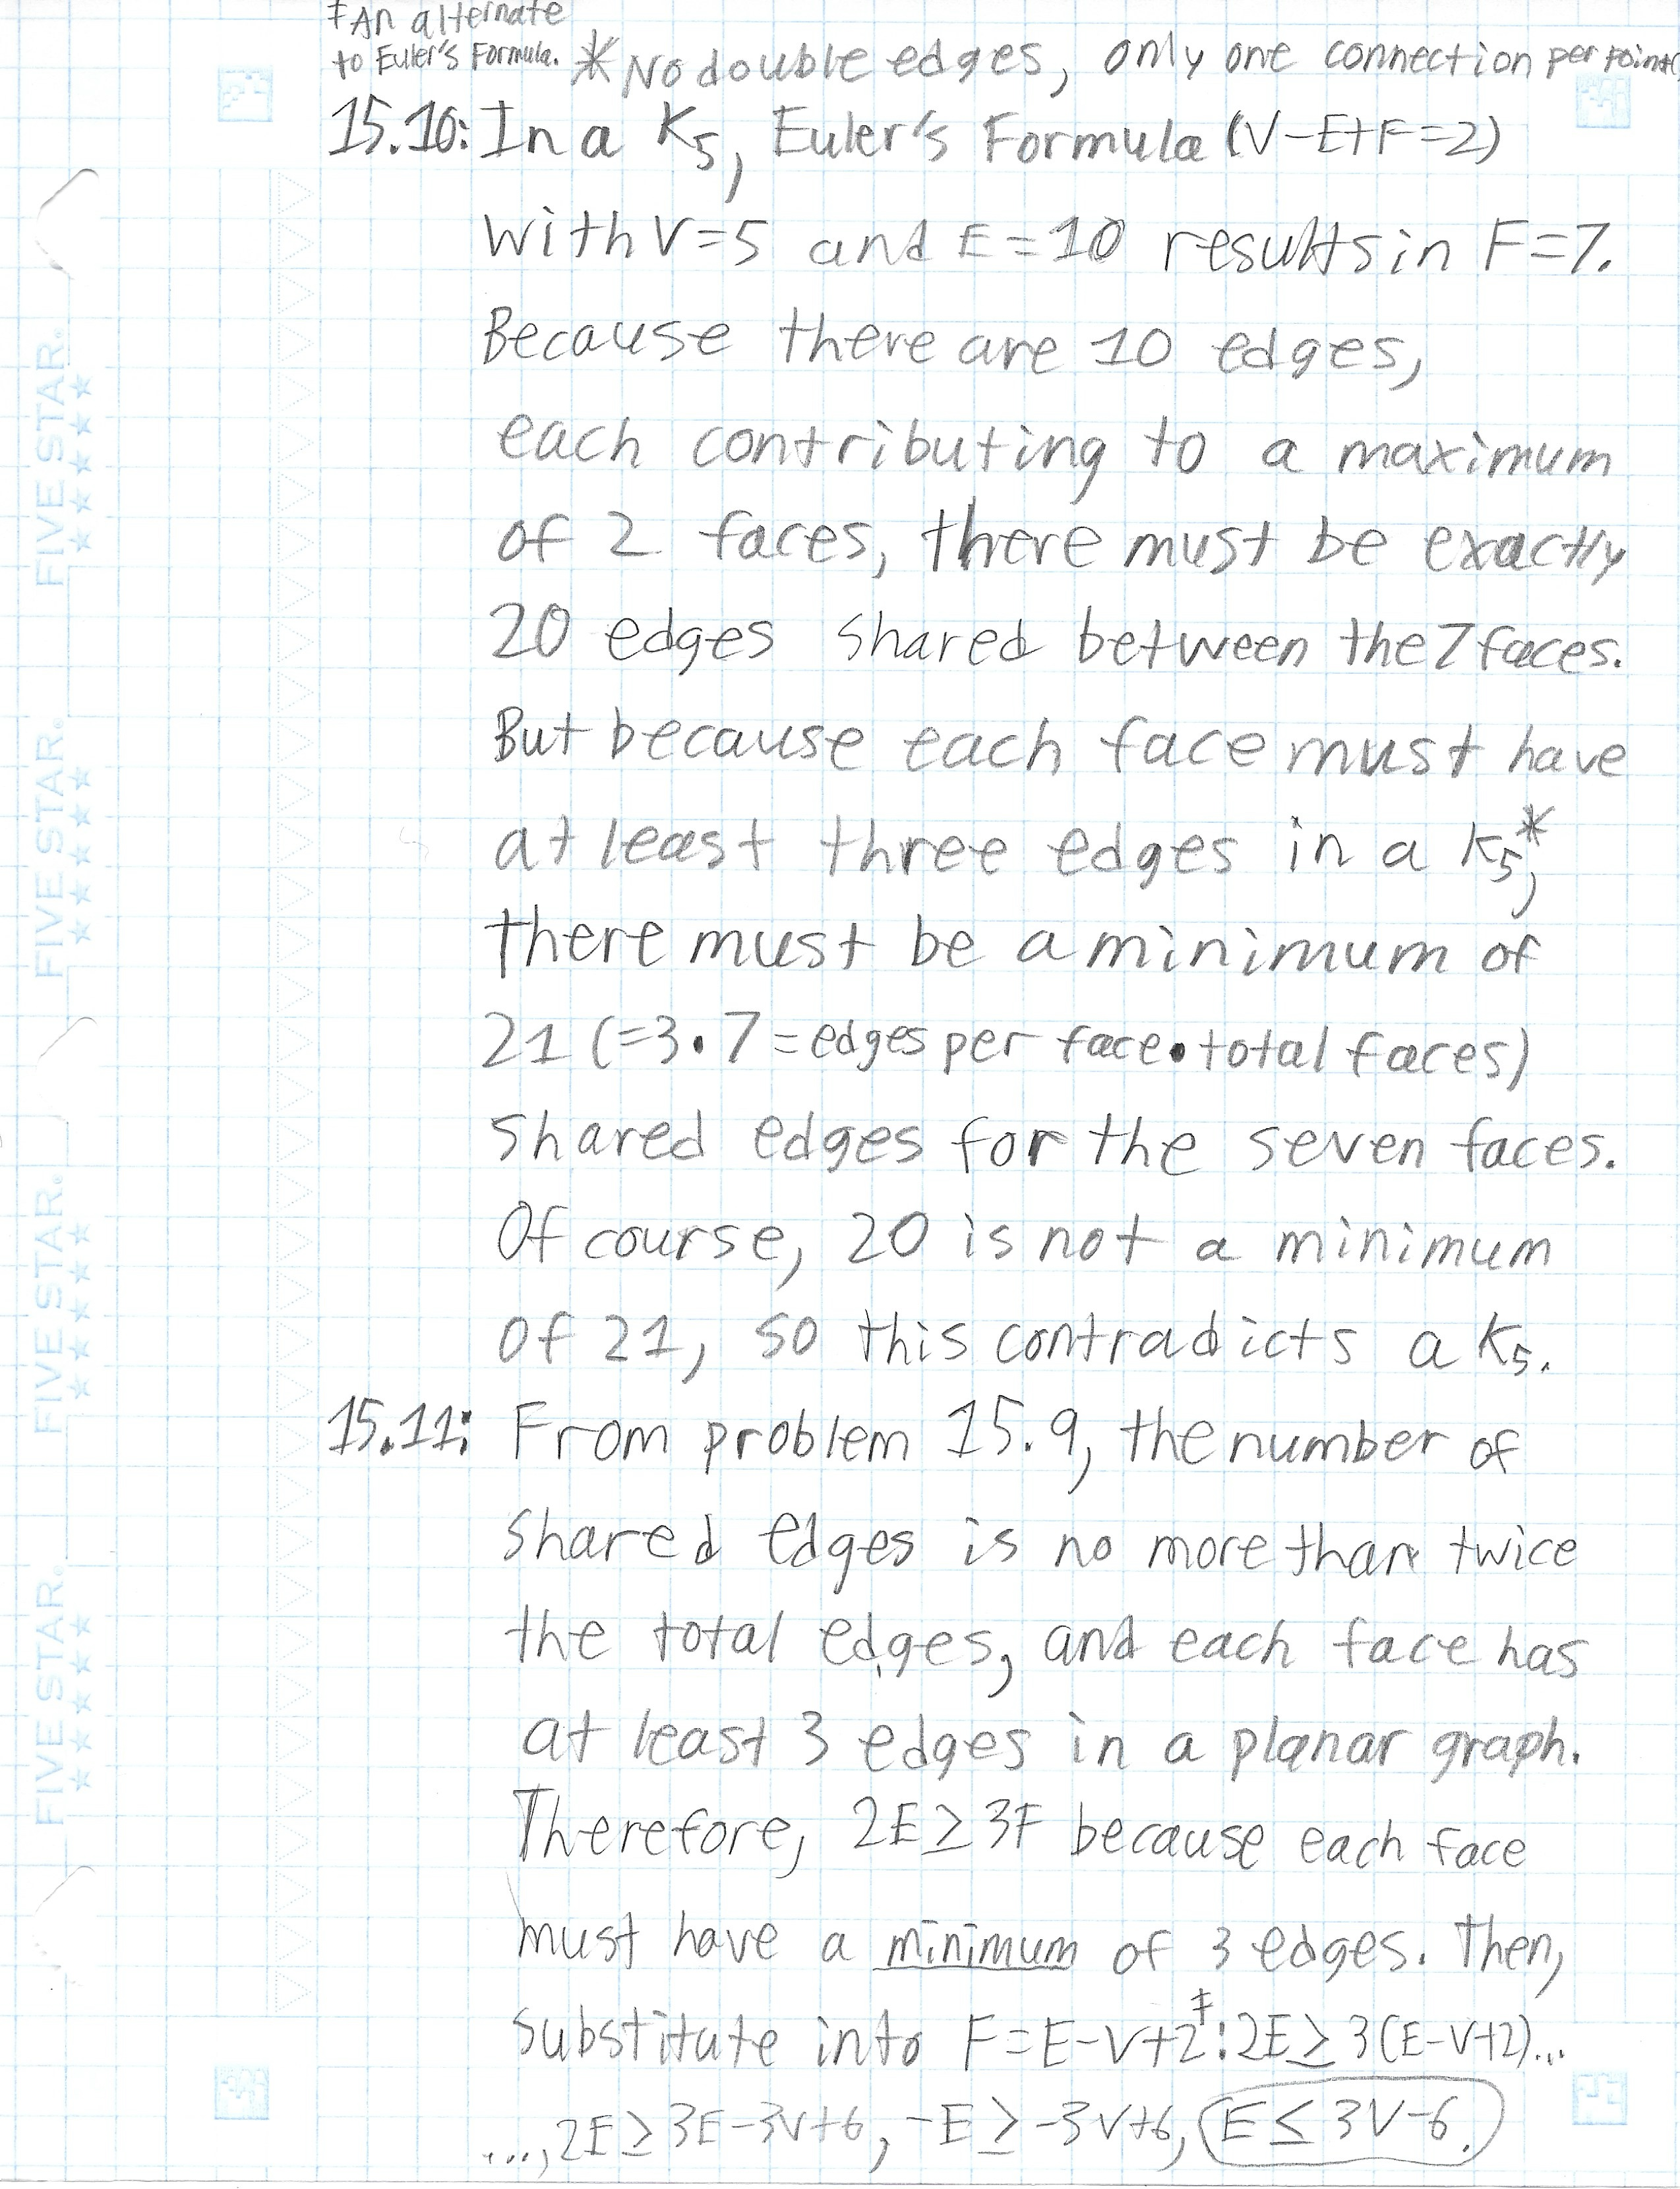 ‡An alternate
to Euler's Formula. *No double edges, only one connection per point(
15.10: In a K5, Euler's Formula (V-E+F=2)
with V=5 and E=10 results in F=7.
Because there are 10 edges,
each contributing to a maximum
of 2 faces, there must be exactly
20 edges shared between the 7 faces.
But because each face must have
at least three edges in a K5*,
there must be a minimum of
21 (=3•7=edges per face•total faces)
shared edges for the seven faces.
Of course, 20 is not a minimum
of 21, so this contradicts a K5.
15.11: From problem 15.9, the number of
shared edges is no more than twice
the total edges, and each face has
at least 3 edges in a planar graph.
Therefore, 2E≥3F because each face
must have a minimum of 3 edges. Then,
substitute into F=E-V+2‡: 2E≥3(E-V+2)...
...,2E≥3E-3V+6, -E≥-3V+6, E≤3V-6.
FIVE STAR.
FIVE STAR.
FIVE STAR.
FIVE STAR.